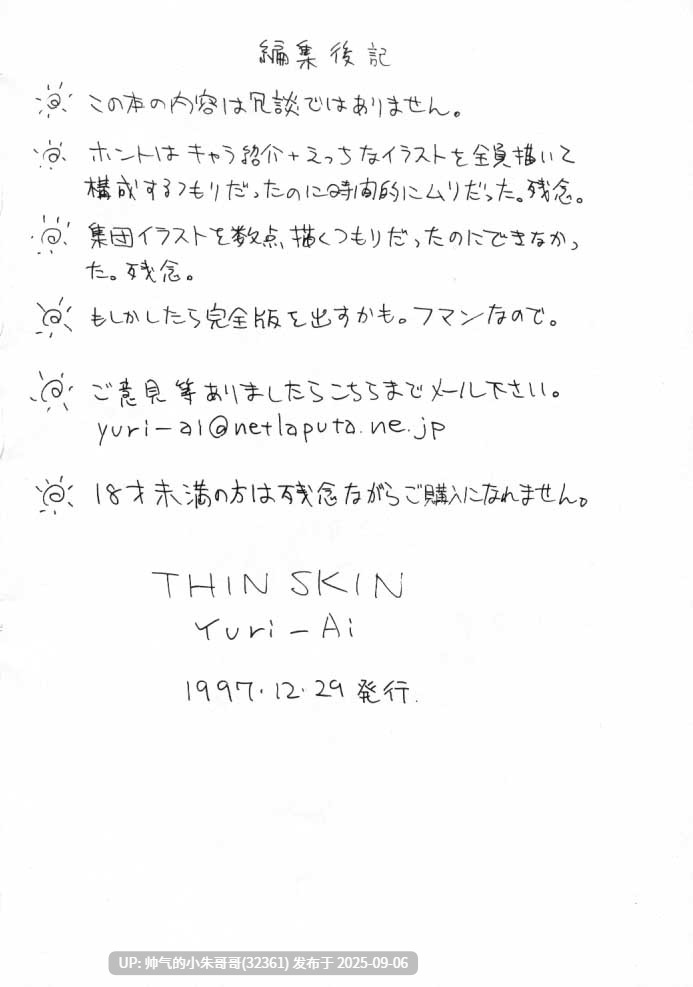 編集後記
この本の内容は冗談ではありません。
ホントはキャラ紹介+えっちなイラストを全員描いて
構成するつもりだったのに時間的にムリだった。残念。
集団イラストを数点描くつもりだったのにできなかっ
た。残念。
もしかしたら完全版を出すかも。フマンなので。
ご意見等ありましたらこちらまでメール下さい。
yuri-ai@netlaputa.ne.jp
18才未満の方は残念ながらご購入になれません。
THIN SKIN
Yuri-Ai
1997.12.29発行.
UP: 帅气的小朱哥哥(32361) 发布于 2025-09-06